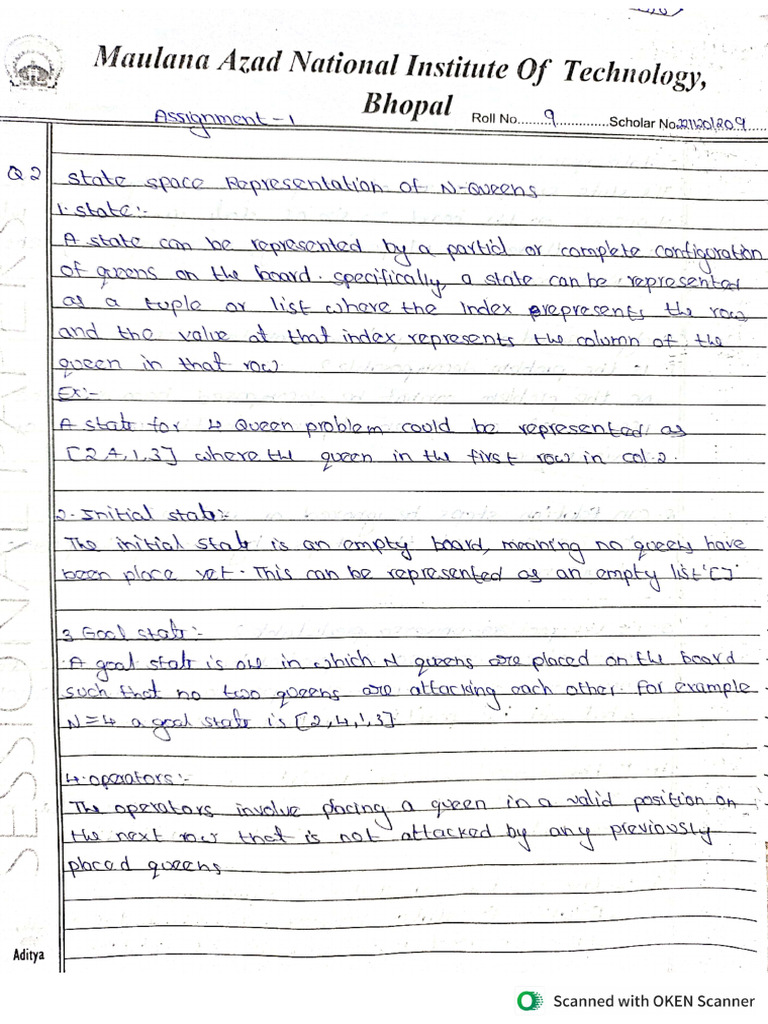 Maulana Azad National Institute Of Technology,
Bhopal
Assignment - 1
Roll No.......9..............Scholar No.2211201209.....
Q2 State space Representation of N-Queens
1. state:-
A state can be represented by a partial or complete configuration
of queens on the board. specifically, a state can be represented
as a tuple or list where the index represents the row
and the value at that index represents the column of the
queen in that row
Ex:-
A state for 4 Queen problem could be represented as
[2,4,1,3] where the queen in the first row in col-2
2. Initial state:-
The initial state is an empty board, meaning no queens have
been place yet. This can be represented as an empty list '[]'.
3 Goal state:-
A goal state is one in which N queens are placed on the board
such that no two queens are attacking each other. For example
N=4 a goal state is [2,4,1,3]
4. operators:-
The operators involve placing a queen in a valid position on
the next row that is not attacked by any previously
placed queens
SESSIONAL PAPERS
Aditya
Scanned with OKEN Scanner